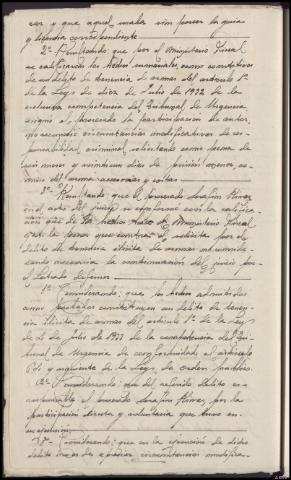 cer y que aquel usaba sin poseer la guia
y licencia correspondiente
2º Resultando, que por el Ministerio Fiscal
se calificaron los hechos sumariales, como constitutivos
de un delito de tenencia de armas del articulo 1º
de la Ley de diez de Julio de 1932 de la
exclusiva competencia del Tribunal de Urgencia
asignó al procesado la participación de autor,
no circunstancias modificativas de res-
ponsabilidad criminal, solicitando como pena la
de seis meses y veintiun dias de prision menor, co-
miso del arma accesorias y costas
3º Resultando, que el procesado Serafin Pérez
en el acto del juicio se conformó con la califica-
ción que de los hechos hacía el Ministerio Fiscal
con la pena que contra el solicita por el
delito de tenencia ilicita de armas no conside-
rando necesaria la continuación del juicio por
el Letrado defensor.
1º Considerando: que los hechos declarados
como probados constituyen un delito de tenen-
cia ilicita de armas del articulo 1º de la Ley
de de Julio de 1932 de la competencia del Tri-
bunal de Urgencia de conformidad al articulo
y siguiente de la Ley de Orden publico.
2º Considerando: que del referido delito es
responsable el procesado Serafin Pérez, por la
participación directa y voluntaria que tuvo en
su ejecución
3º Considerando: que en la ejecución de dicho
delito no son de apreciar circunstancias modifica-